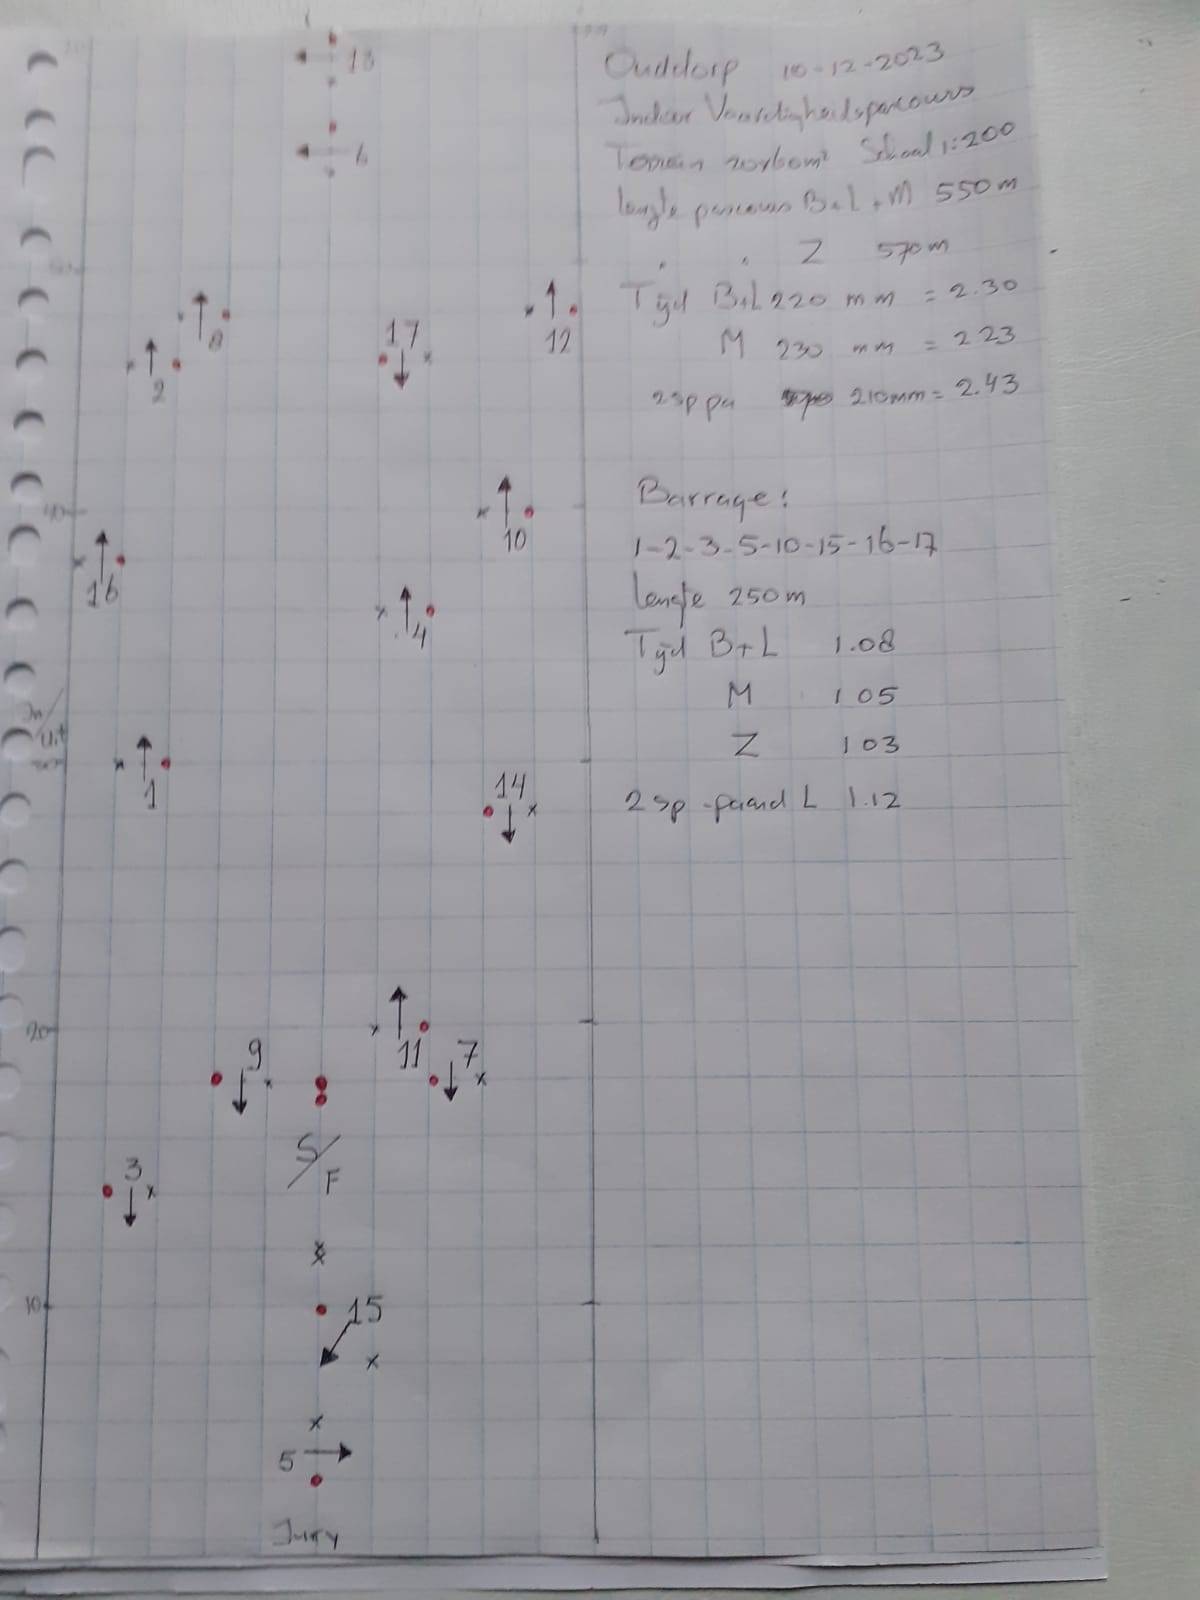 13
6
8
2
17
12
10
16
4
1
14
11
7
9
3
S/F
15
5
Jury
40
In/
Uit
30
20
10
Ouddorp 10-12-2023
Indoor Vaardigheidsparcours
Terrein 20x60m² Schaal 1:200
lengte parcours B+L+M 550m
" " Z 570m
Tijd B+L 220 mm = 2.30
M 230 mm = 2 23
2sp pa 210mm = 2.43
Barrage:
1-2-3-5-10-15-16-17
lengte 250m
Tijd B+L 1.08
M 1 05
Z 1 03
2 sp-paard L 1.12